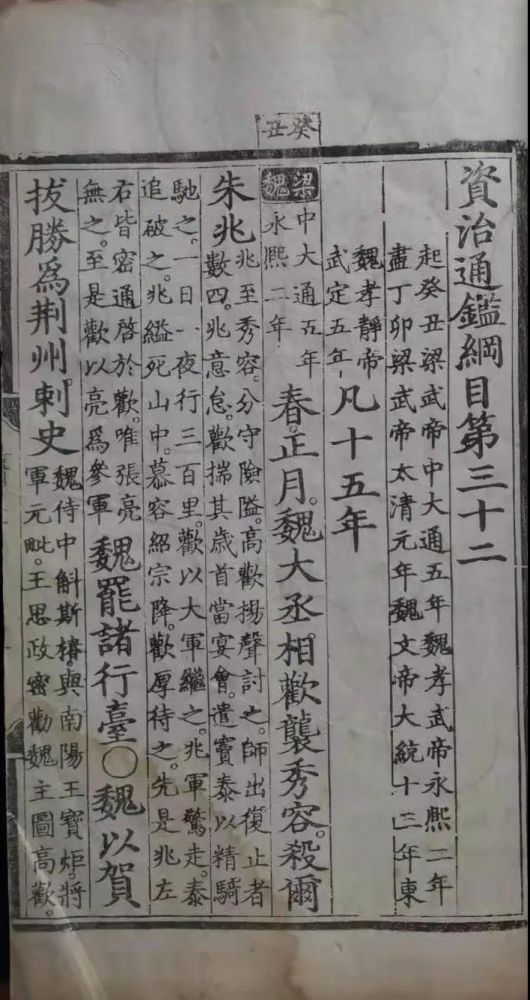 癸丑
資治通鑑綱目第三十二
起癸丑梁武帝中大通五年魏孝武帝永熙二年
盡丁卯梁武帝太清元年魏文帝大統十三年東
魏孝靜帝
武定五年
凡十五年
梁
魏
中大通五年
永熙二年
春。正月。魏大丞相歡襲秀容。殺爾
朱兆
兆至秀容。分守險隘。高歡揚聲討之。師出復止者
數四。兆意怠。歡揣其歲首當宴會。遣竇泰以精騎
馳之。一日一夜行三百里。歡以大軍繼之。兆軍驚走。泰
追破之。兆縊死山中。慕容紹宗降。歡厚待之。先是兆左
右皆密通啓於歡。唯張亮
無之。至是歡以亮爲參軍
魏罷諸行臺○魏以賀
拔勝爲荆州刺史
魏侍中斛斯椿。與南陽王寶炬。將
軍元毗。王思政密勸魏主圖高歡。